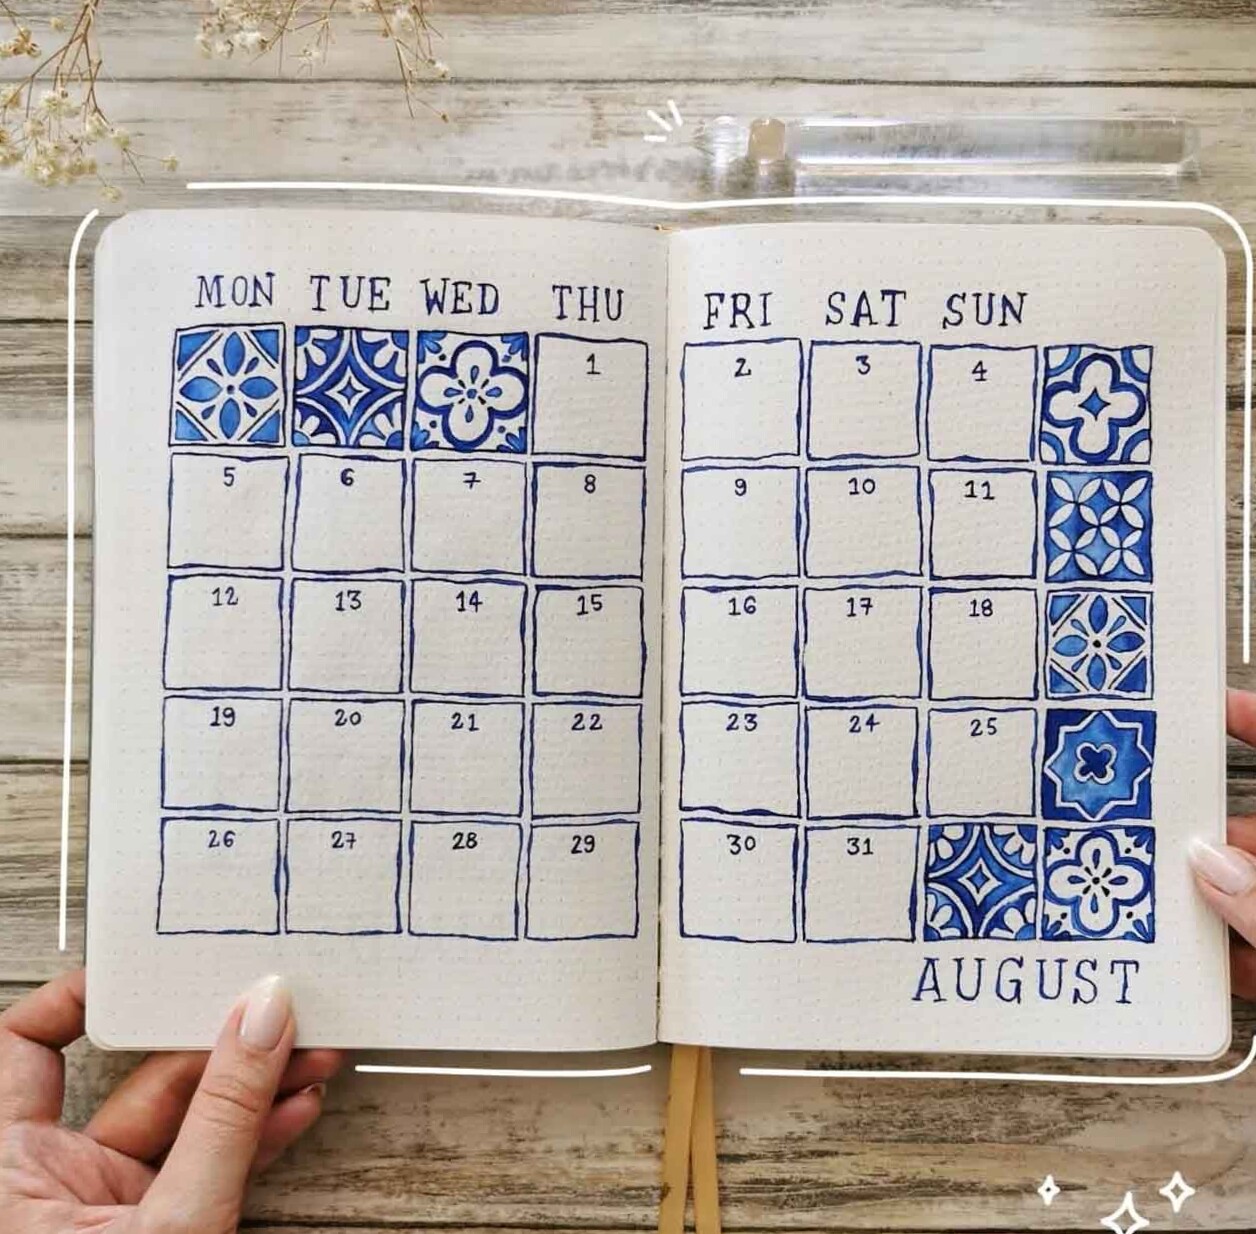 MON TUE WED THU FRI SAT SUN
1 2 3 4
5 6 7 8 9 10 11
12 13 14 15 16 17 18
19 20 21 22 23 24 25
26 27 28 29 30 31
AUGUST